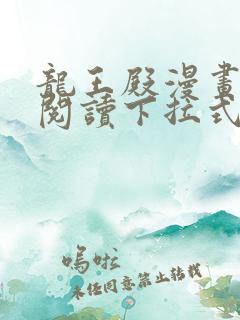 龍王殿漫畫
閱讀下拉式
嗚啦
未任同意禁止轉載